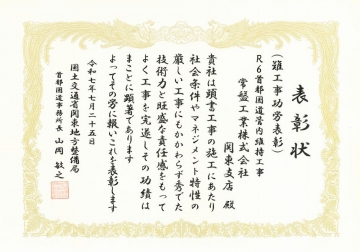 表彰状
（難工事功労表彰）
R6首都国道管内維持工事
常盤工業株式会社
関東支店 殿
貴社は頭書工事の施工にあたり
社会条件やマネジメント特性の
厳しい工事にもかかわらず秀でた
技術力と旺盛な責任感をもって
よく工事を完遂しその功績は
まことに顕著であります
よってその労に報いこれを表彰します
令和七年七月二十五日
国土交通省関東地方整備局
首都国道事務所長 山岡敏之